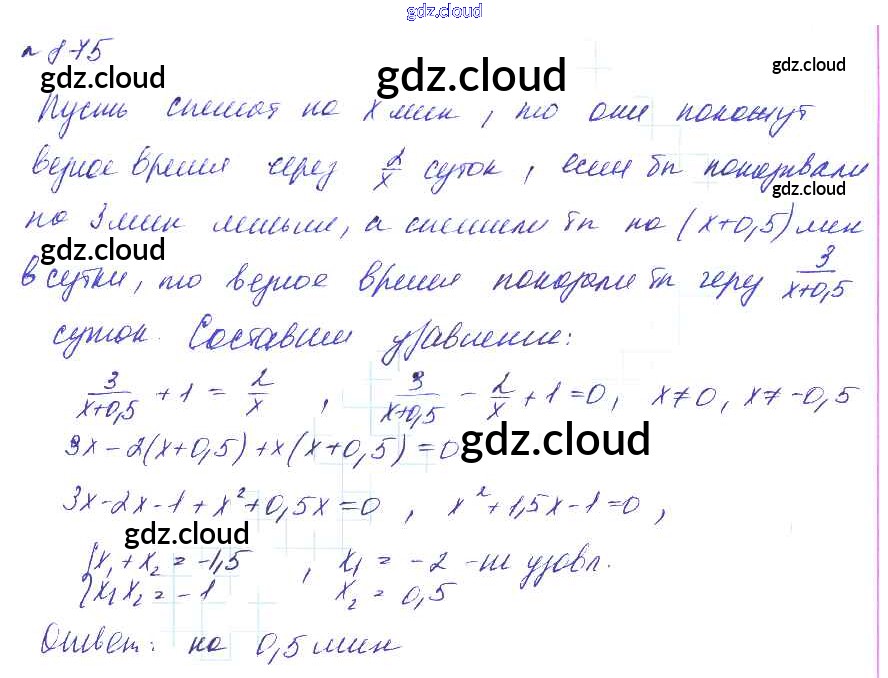 gdz.cloud
№ 875
gdz.cloud gdz.cloud gdz.cloud
Пусть спешат на x мин, то они покажут
верное время через 2/x суток, если бы показывали
gdz.cloud
на 3 мин меньше, а спешили бы на (x+0,5) мин
gdz.cloud
в сутки, то верное время показали бы через 3/(x+0,5)
суток. Составим уравнение:
3/(x+0,5) + 1 = 2/x , 3/(x+0,5) - 2/x + 1 = 0, x≠0, x≠-0,5
3x-2(x+0,5)+x(x+0,5)=0
gdz.cloud
3x-2x-1+x²+0,5x=0 , x²+1,5x-1=0 ,
gdz.cloud
{x₁+x₂=-1,5 , x₁ = -2 -не удовл.
{x₁x₂=-1 x₂ = 0,5
Ответ: на 0,5 мин